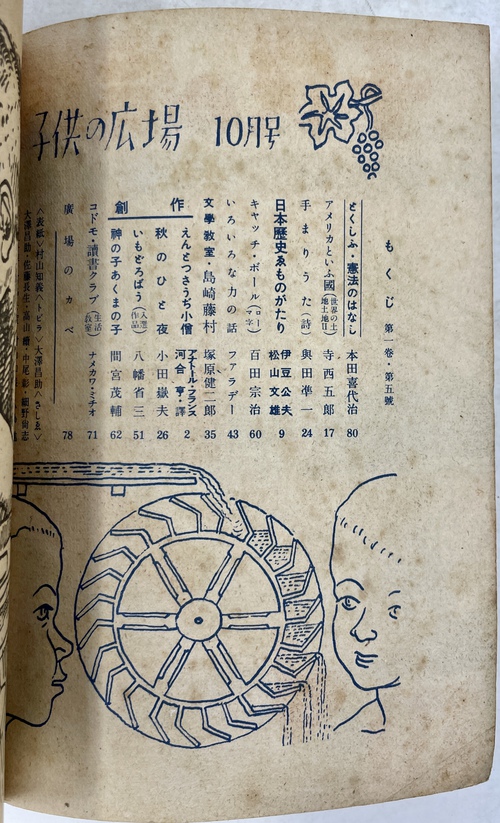 子供の広場 10月号
もくじ 第一卷・第五號
とくしふ・憲法のはなし 本田喜代治 80
アメリカといふ國(世界の土地土地Ⅱ) 寺西五郎 17
手まりうた(詩) 與田凖一 24
日本歴史ゑものがたり 伊豆公夫 松山文雄 9
キャッチ・ボール(ローマ字) 百田宗治 60
いろいろな力の話 フアラデー 43
文學教室・島崎藤村 塚原健二郎 35
創作
えんとつさうぢ小僧 アナトール・フランス 河合亨・譯 2
秋のひと夜 小田嶽夫 26
いもどろばう(入選作品) 八幡省三 51
神の子あくまの子 間宮茂輔 62
コドモ・讀書クラブ(生活教室) ナメカワ・ミチオ 71
廣場のカベ 78
〈表紙〉村山知義〈トビラ〉大澤昌助〈さしゑ〉
大澤昌助・佐藤長生・高山 ・中尾彰・細野尚志